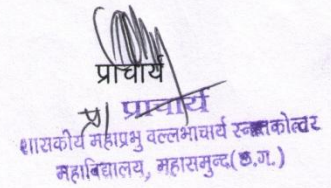 प्राचार्य
प्राचार्य
शासकीय महाप्रभु वल्लभाचार्य स्नातकोत्तर
महाविद्यालय, महासमुन्द(छ.ग.)